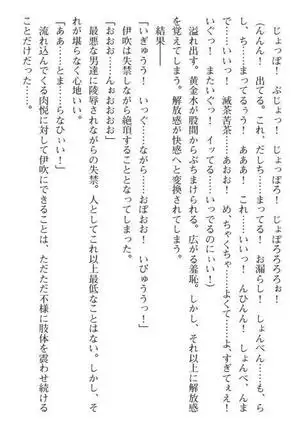 じょっぽ！　ぷじょっ！　じょっぽろ！　じょぽろろろろぉ！
（んんん！　出てる。これ、だしち……まってる！　お漏らし！　しょんべん……も、ら
し、ち……まってるぅ！　あああ！　これ……いいっ！　んひんん！　しょんべ、んま
で……いいっ！　滅茶苦茶……あおお！　め、ちゃくちゃ……よくて……よ、すぎてぇえ！
いっぐ！　まだいぐっ！　イッてる……いっでるのにぃい！）
溢れ出す。黄金水が股間からぶちまけられる。広がる羞恥。しかし、それ以上に解放感
を覚えてしまう。解放感が快感へと変換されてしまう。
結果――
「いぎゅうう！　いっぐ……ながら……おぼおお！　いびゅううっ！」
伊吹は失禁しながら絶頂することとなってしまった。
「おお……んぉおおおお」
最悪な男達に陵辱されながらの失禁。人としてこれ以上最低なことはない。しかし、そ
れが堪らなく心地いい。
「ああ……とま……らなひぃい！」
流れ込んでくる肉悦に対して伊吹にできることは、ただただ不様に肢体を震わせ続ける
ことだけだった……。